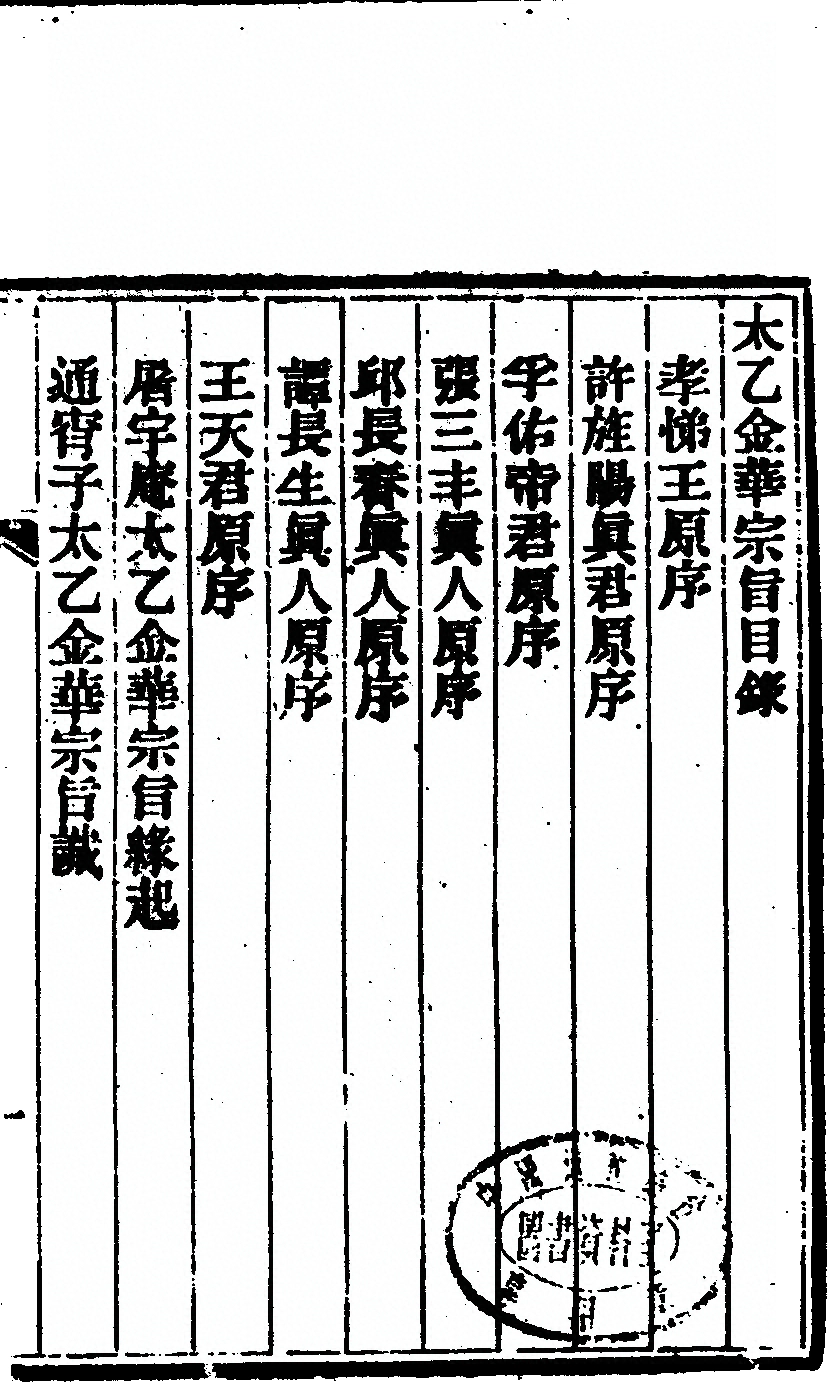 太乙金華宗旨目錄
孝悌王原序
許旌陽眞君原序
孚佑帝君原序
張三丰眞人原序
邱長春眞人原序
譚長生眞人原序
王天君原序
屠宇庵太乙金華宗旨緣起
通宵子太乙金華宗旨識